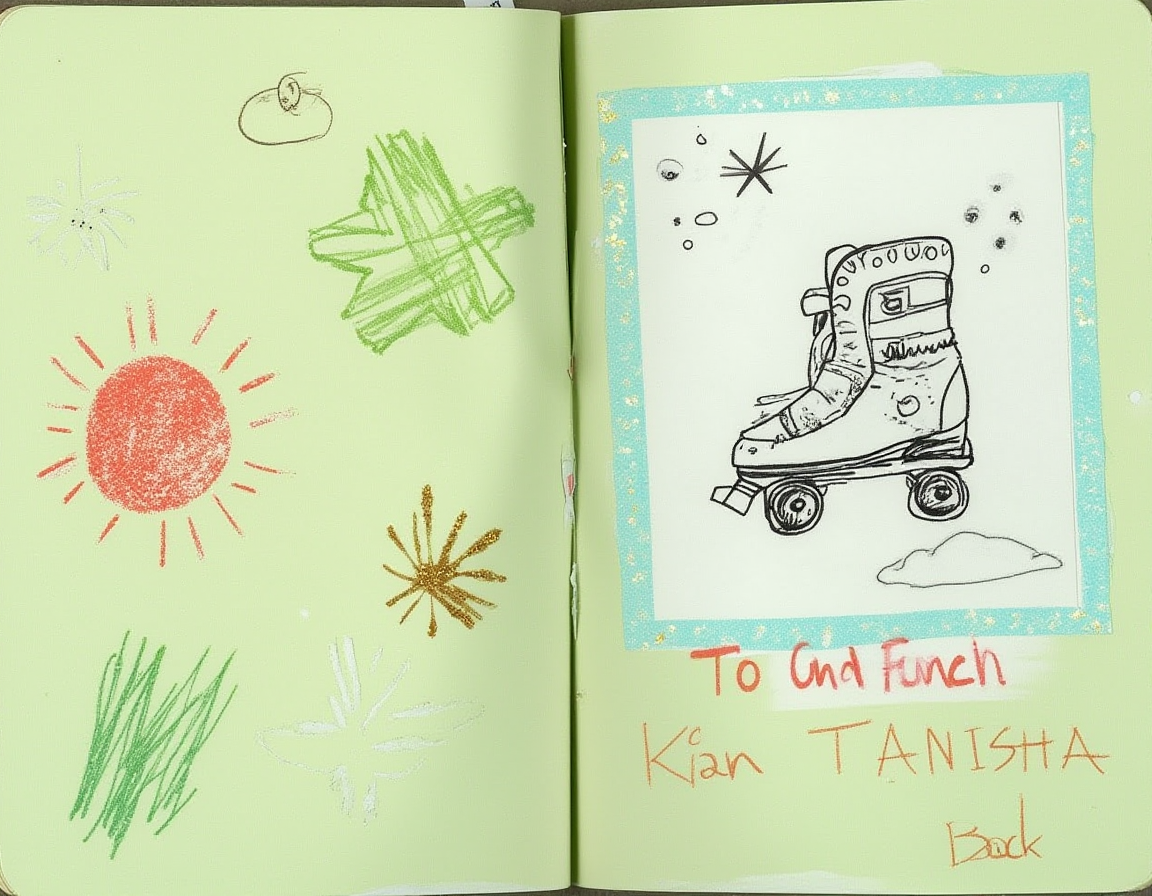 To Cnd Funch
Kian TANISHA
Bock